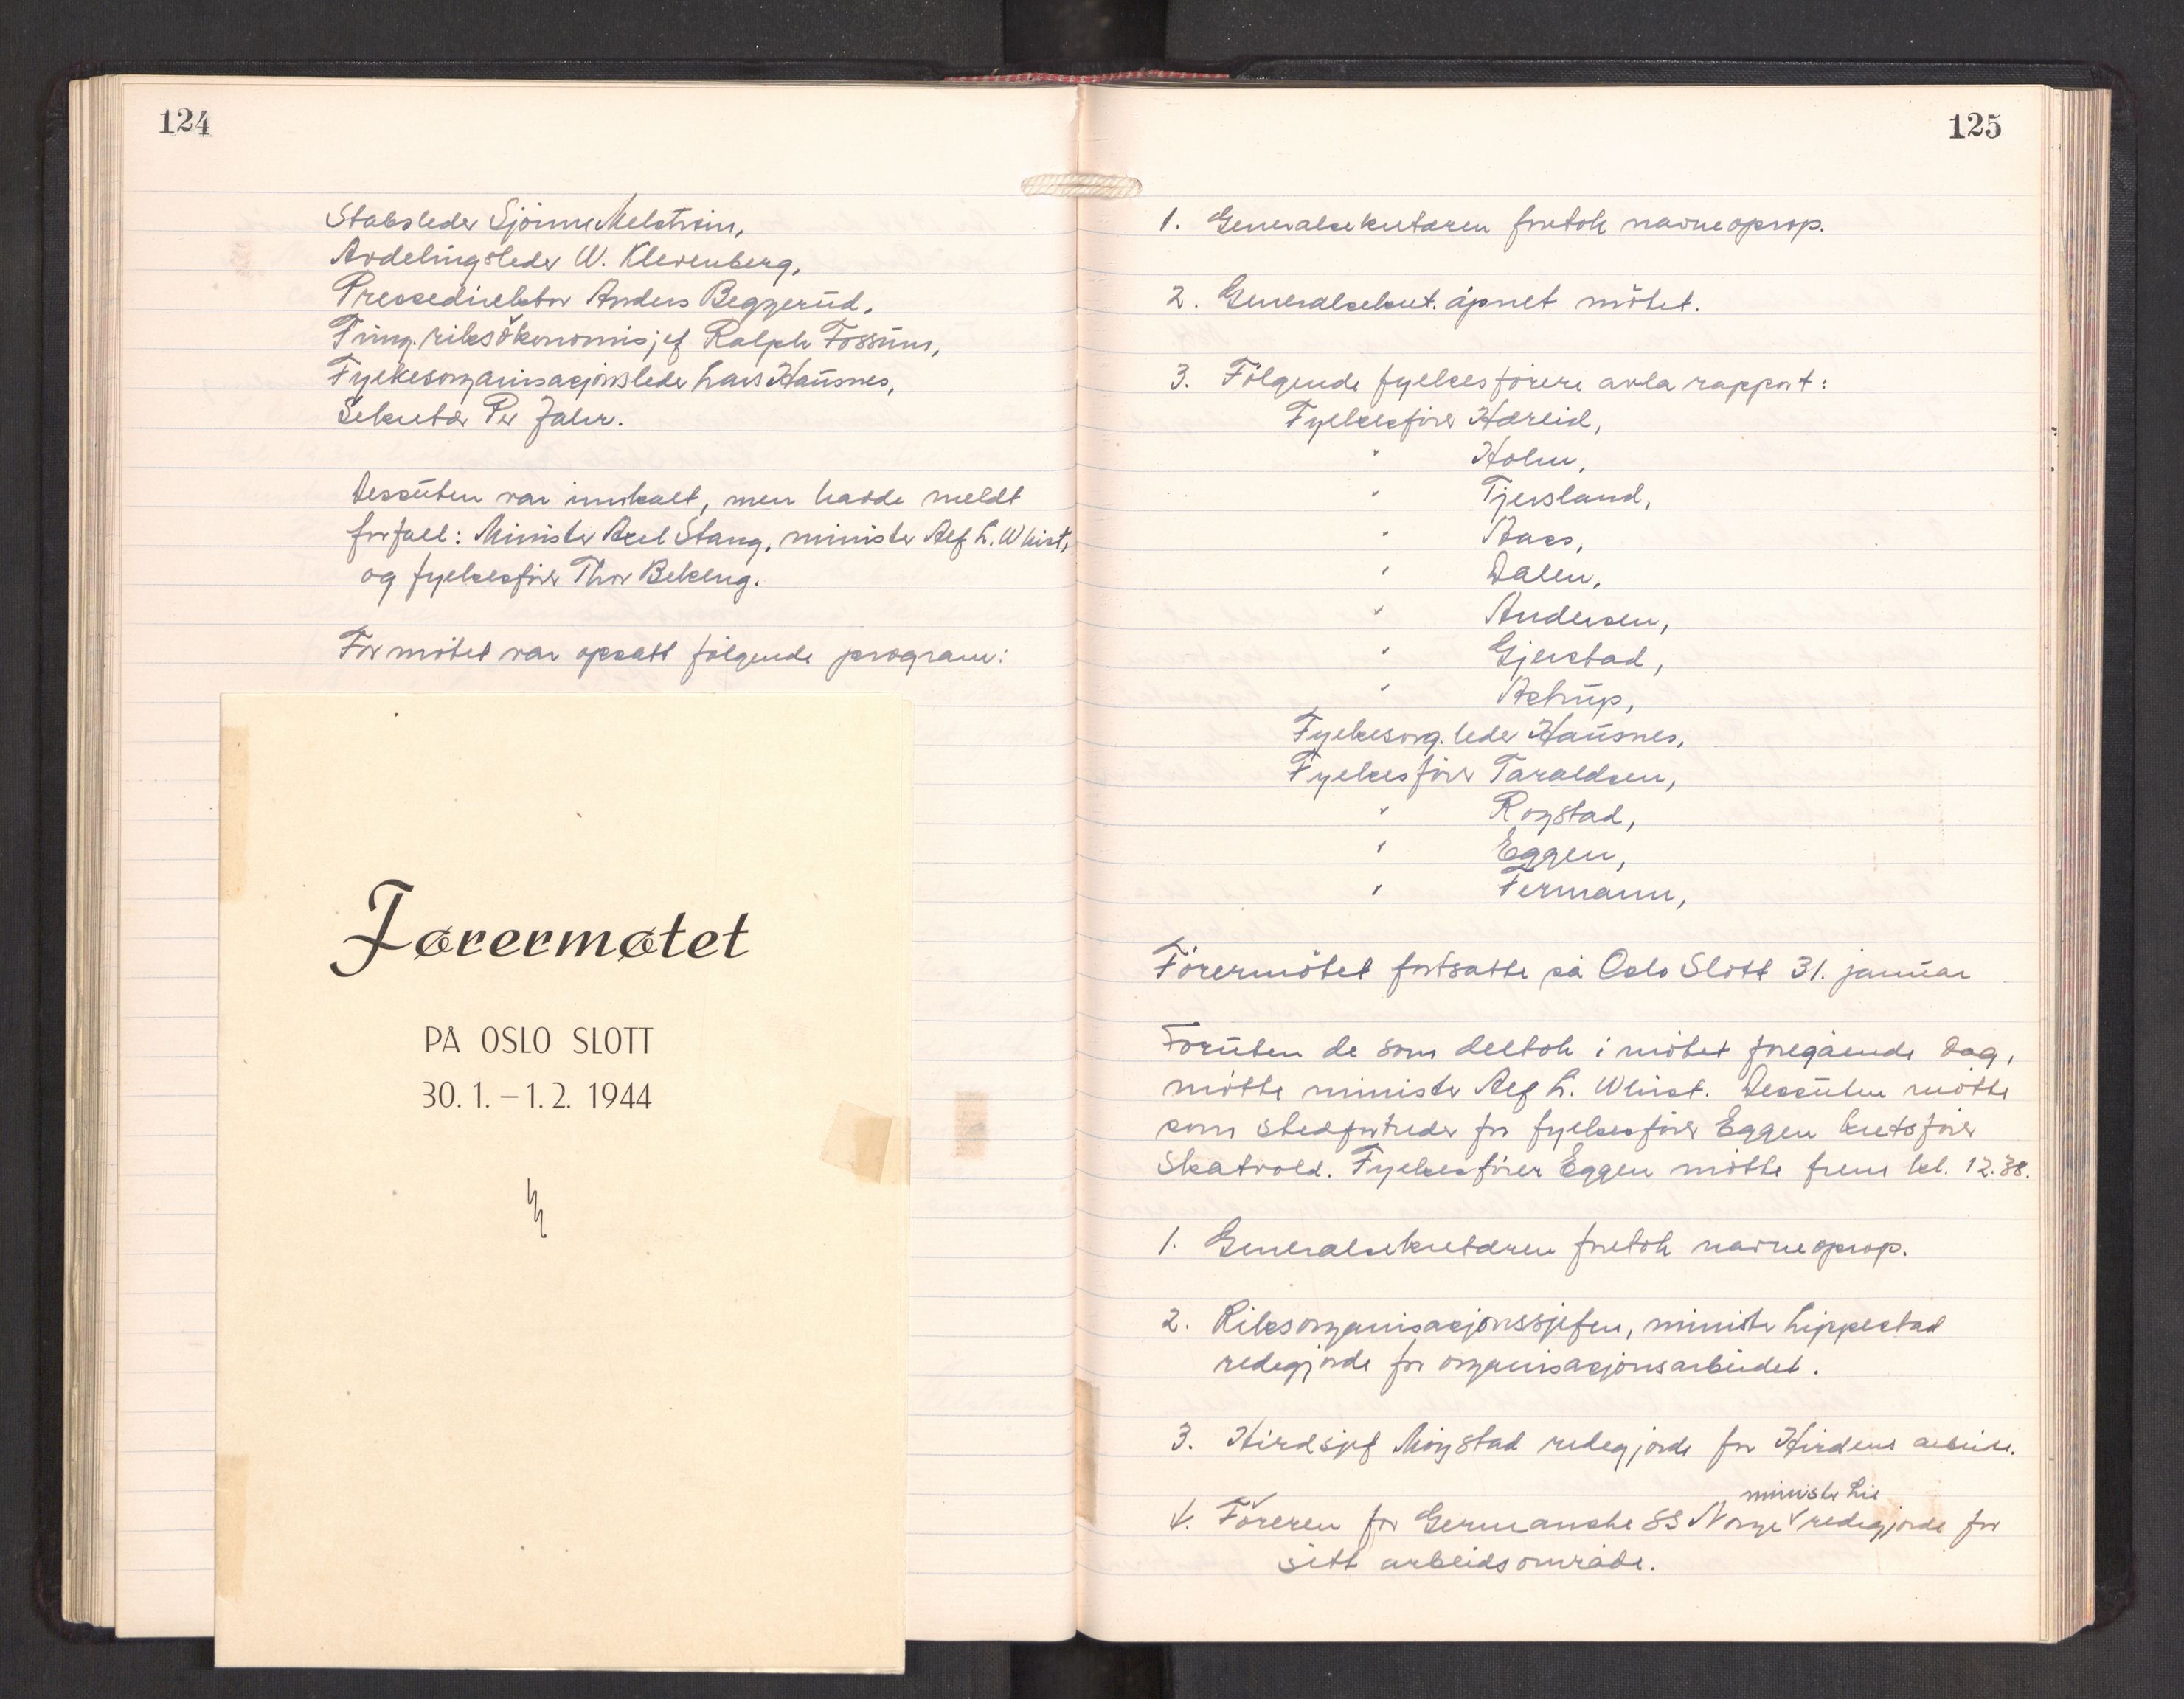 124
Stabsleder Sjönne Melstrøm,
Avdelingsleder W. Klevenberg,
Pressedirektør Anders Beggerud,
Fung. riksökonomisjef Ralph Fossum,
Fylkesorganisasjonsleder Lars Hausnes,
Sekretær Per Jahr.
Dessuten var innkalt, men hadde meldt
forfall: Minister Axel Stang, minister Alf L. Whist,
og fylkesförer Thor Bekeng.
For mötet var opsatt fölgende program:
Førermøtet
PÅ OSLO SLOTT
30. 1. – 1. 2. 1944
125
1. Generalsekretæren foretok navneoprop.
2. Generalsekret. åpnet mötet.
3. Fölgende fylkesförere avla rapport:
Fylkesförer Hæreid,
" Holm,
" Tjersland,
" Aass,
" Dalen,
" Andersen,
" Gjerstad,
" Astrup,
Fylkesorg.leder Hausnes,
Fylkesförer Taraldsen,
" Rogstad,
" Eggen,
" Fermann,
Förermötet fortsatte på Oslo Slott 31. januar
Foruten de som deltok i mötet foregående dag,
mötte minister Alf L. Whist. Dessuten mötte
som stedfortreder for fylkesförer Eggen kretsförer
Skatvold. Fylkesförer Eggen mötte frem kl. 12.38.
1. Generalsekretæren foretok navneoprop.
2. Riksorganisasjonssjefen, minister Lippestad
redegjorde for organisasjonsarbeidet.
3. Hirdsjef Mögstad redegjorde for Hirdens arbeide.
minister Lie
4. Föreren for Germanske SS Norge redegjorde for
sitt arbeidsområde.